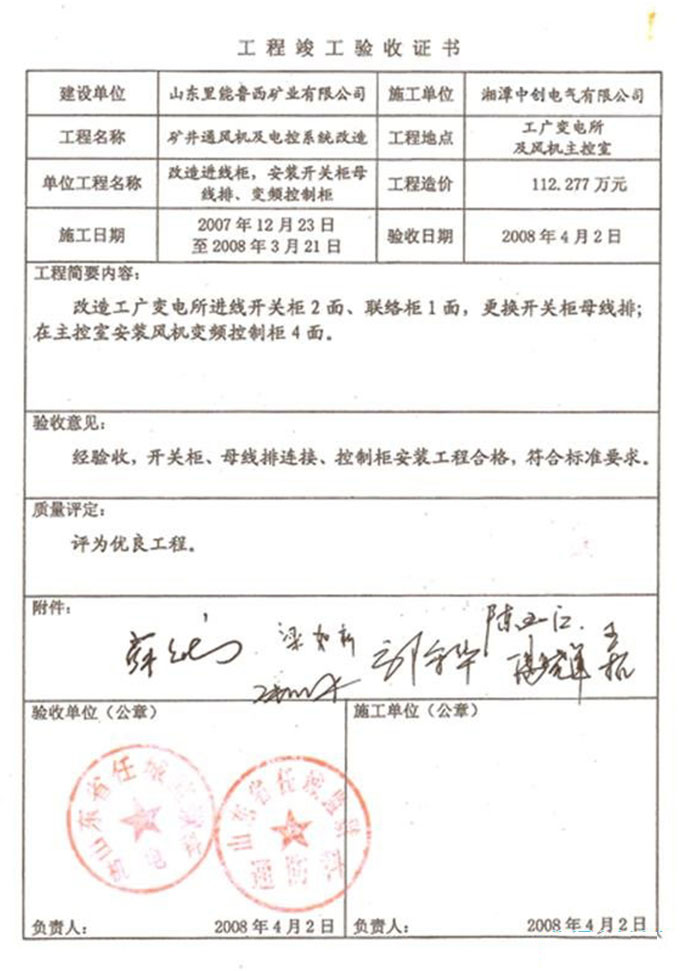 工程竣工验收证书
建设单位 山东里能鲁西矿业有限公司 施工单位 湘潭中创电气有限公司
工程名称 矿井通风机及电控系统改造 工程地点 工广变电所
及风机主控室
单位工程名称 改造进线柜，安装开关柜母
线排、变频控制柜 工程造价 112.277万元
施工日期 2007年12月23日
至2008年3月21日 验收日期 2008年4月2日
工程简要内容：
改造工广变电所进线开关柜2面、联络柜1面，更换开关柜母线排；
在主控室安装风机变频控制柜4面。
验收意见：
经验收，开关柜、母线排连接、控制柜安装工程合格，符合标准要求。
质量评定：
评为优良工程。
附件：
验收单位（公章） 施工单位（公章）
山东省任城
山东省任城监狱
负责人： 2008年4月2日 负责人： 2008年4月2日